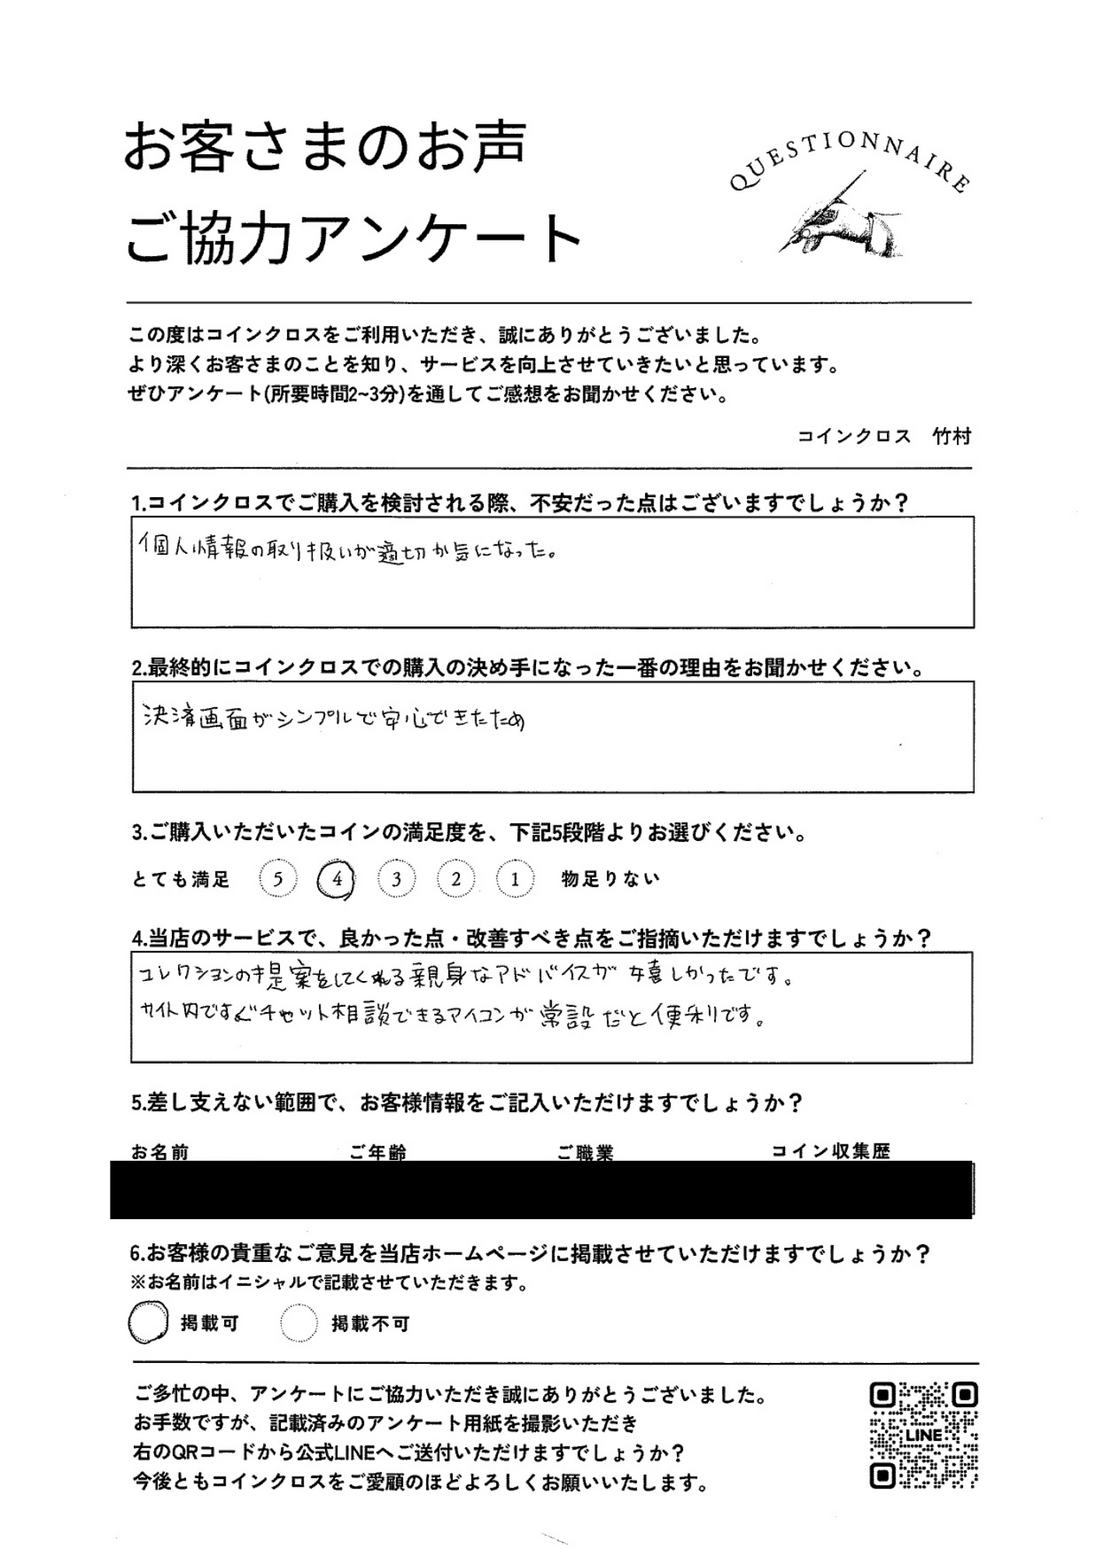 お客さまのお声
ご協力アンケート
QUESTIONNAIRE
この度はコインクロスをご利用いただき、誠にありがとうございました。
より深くお客さまのことを知り、サービスを向上させていきたいと思っています。
ぜひアンケート(所要時間2~3分)を通してご感想をお聞かせください。
コインクロス 竹村
1.コインクロスでご購入を検討される際、不安だった点はございますでしょうか?
個人情報の取り扱いが適切か気になった。
2.最終的にコインクロスでの購入の決め手になった一番の理由をお聞かせください。
決済画面がシンプルで安心できたため
3.ご購入いただいたコインの満足度を、下記5段階よりお選びください。
とても満足 5 4 3 2 1 物足りない
4.当店のサービスで、良かった点・改善すべき点をご指摘いただけますでしょうか?
コレクションの提案をしてくれる親身なアドバイスが嬉しかったです。
サイト内ですぐチャット相談できるアイコンが常設だと便利です。
5.差し支えない範囲で、お客様情報をご記入いただけますでしょうか?
お名前 ご年齢 ご職業 コイン収集歴
6.お客様の貴重なご意見を当店ホームページに掲載させていただけますでしょうか?
※お名前はイニシャルで記載させていただきます。
掲載可 掲載不可
ご多忙の中、アンケートにご協力いただき誠にありがとうございました。
お手数ですが、記載済みのアンケート用紙を撮影いただき
右のQRコードから公式LINEへご送付いただけますでしょうか?
今後ともコインクロスをご愛顧のほどよろしくお願いいたします。
LINE